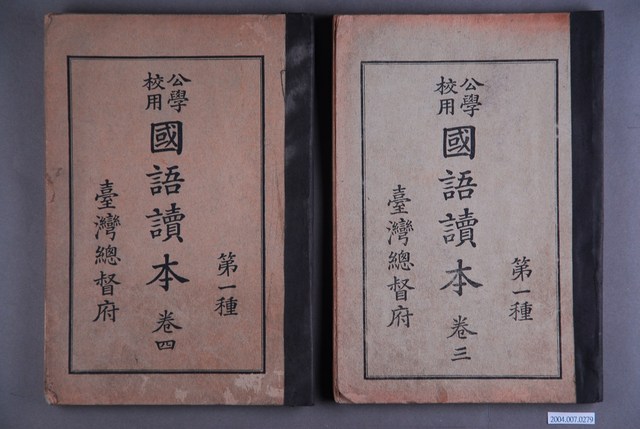 公學
校用
國語讀本 卷四
第一種
臺灣總督府
公學
校用
國語讀本 卷三
第一種
臺灣總督府
2004.007.0279